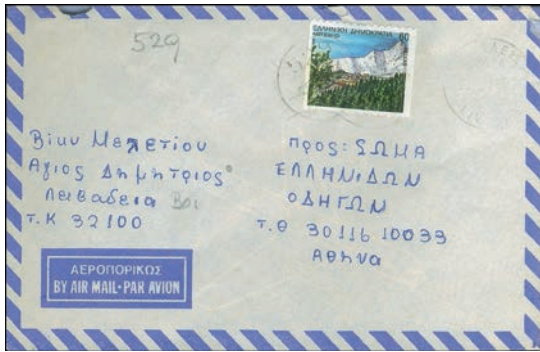 529
ΕΛΛΗΝΙΚΗ ΔΗΜΟΚΡΑΤΙΑ
60
Βίκυ Μελετίου
Αγιος Δημητριος
Λειβαδεια Βοι
Τ.Κ 32100
προς: ΣΩΜΑ
ΕΛΛΗΝΙΔΩΝ
ΟΔΗΓΩΝ
Τ.Θ 30116 10033
Αθηνα
ΑΕΡΟΠΟΡΙΚΩΣ
BY AIR MAIL-PAR AVION